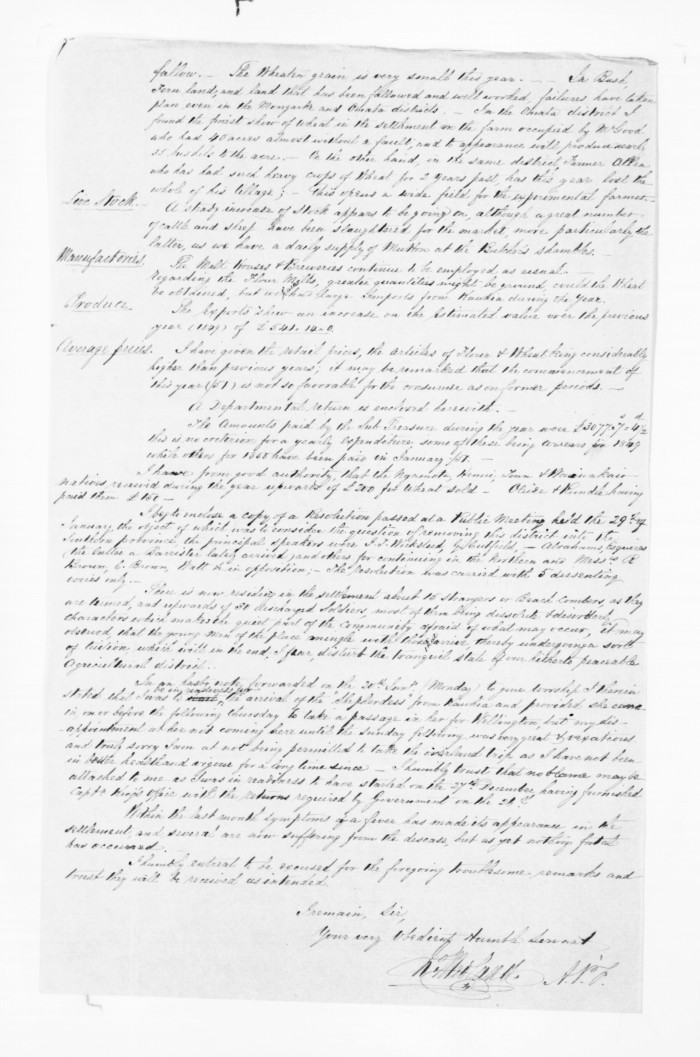 fallow. — The Wheaten grain is very small this year. — — In Bush,
Fern land, and land that has been fallowed and well worked, failures have taken
place even in the and Omata districts. — In the Omata district I
found the finest show of Wheat in the settlement on the farm occupied by Mr Good
who had 40 acres almost without a fault, and to appearance will produce nearly
35 bushels to the acre. — On the other hand, in the same district, Farmer
who has had such heavy crops of Wheat for 2 years past, has this year lost the
whole of his tillage; — this opens a wide field for the experimental farmer. —
Live Stock. —
A steady increase of Stock appears to be going on, although a great number
of cattle and sheep have been slaughtered for the market, more particularly the
latter, as we have a daily supply of Mutton at the Butcher's shambles. —
Manufactories.
The Malt Houses & Breweries continue to be employed, as usual. —
regarding the Flour Mills, greater quantities might be ground, could the Wheat
be obtained, but we had large Imports from Kawhia during the Year.
Produce.
The Exports shew an increase on the Estimated value over the previous
year (1849) of £541.14.0.
Average prices.
I have given the retail prices, the articles of Flour & Wheat being considerably
higher than previous years; it may be remarked that the commencement of
this year (/51) is not so favorable for the consumer as on former periods. —
A Departmental return is enclosed herewith. —
The Amounts paid by the Sub Treasurer during the year were £3077 4½
this is no criterion for a yearly Expenditure, some of these being arrears for 1849
while others for 1850 have been paid in January /51. —
I have from good authority, that the Ngamotu, and
natives, received during the year upwards of £200 for Wheat sold — having
paid them £150 —
I beg to enclose a copy of a Resolution passed at a Public Meeting held the 29th of
January, the object of which was to consider the question of removing this district into the
Southern province, the principal speakers were J. T. Wicksteed, — Abraham, Esquires
(the latter a Barrister lately arrived) and others for continuing in the Northern and Messrs R
Brown, C. Brown, Watt &c in opposition; — the Resolution was carried with 5 dissenting
voices only. —
There is now residing in the settlement about 10 strangers or Beach Combers, as they
are termed, and upwards of 30 discharged Soldiers, most of them being dissolute & disorderly
characters which makes the quiet part of the community afraid of what may occur, it may
observed, that the young men of the place mingle with these, thereby undergoing a sort
of tuition, which will in the end, I fear, distort the tranquil state of our hitherto peaceable
Agricultural district. —
In an hasty note forwarded on the 20th Jany (Monday) to your worship I therein
stated that I was to be in readiness for the arrival of the Ship from Kawhia and provided she came
in, on or before the following Thursday to take a passage in her for Wellington, but my dis-
appointment at her not coming here until the Sunday following was very great & vexatious
and truly sorry I am at not being permitted to take the overland trip as I have not been
in better health and vigour for a long time since — I humbly trust that no blame may be
attached to me as I was in readiness to have started on the 27th December, having furnished
Captn King's Office with the returns required by Government on the
Within the last month symptoms of a fever has made its appearance in the
settlement, and several are now suffering from the disease, but as yet nothing fatal
has occurred.
I humbly entreat to be excused for the foregoing troublesome remarks and
trust they will be received as intended.
I remain, Sir,
Your very Obedient Humble Servant